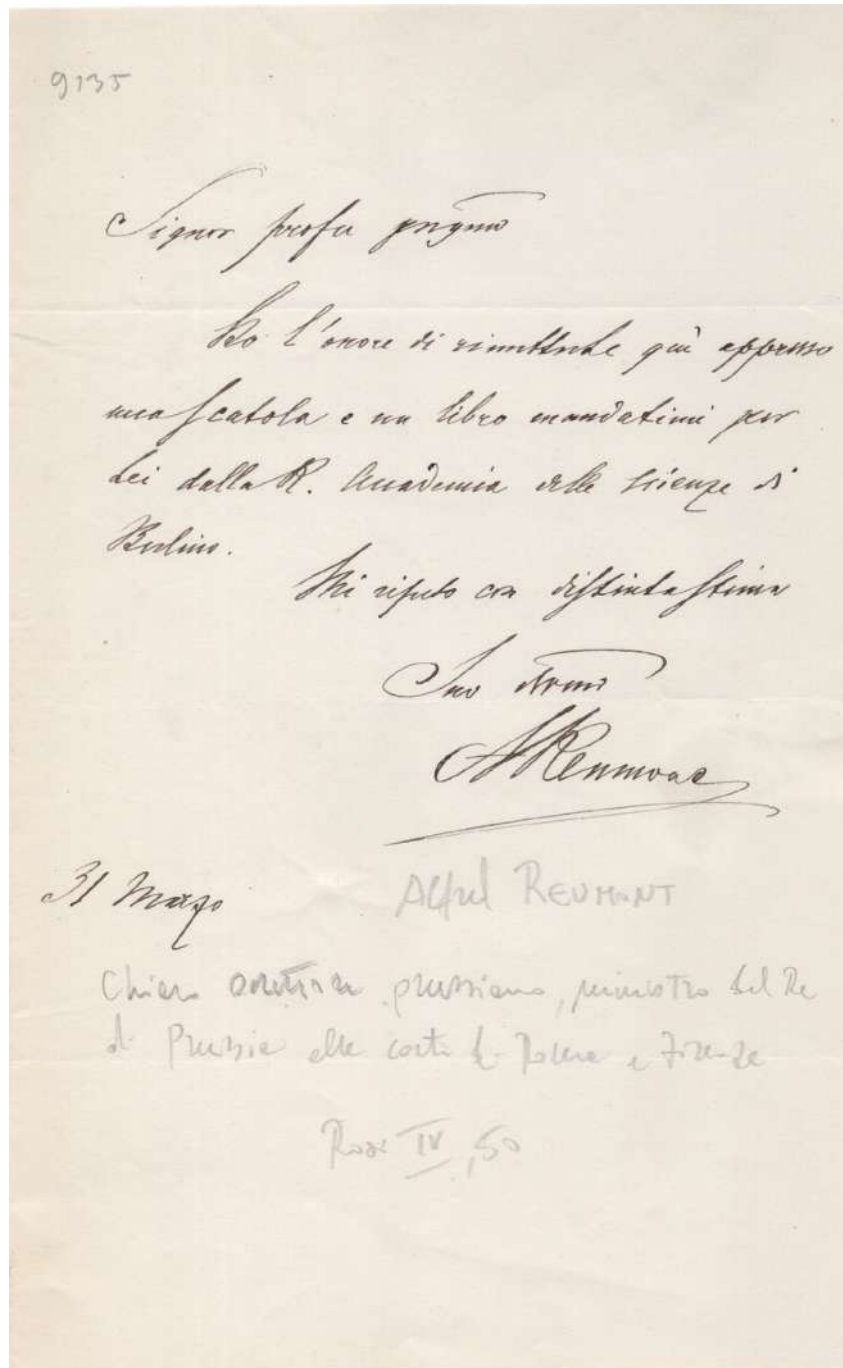 9135
Signor profre pregmo
Ho l'onore di rimetterle quì appresso
una scatola e un libro mandatimi per
Lei dalla R. Accademia delle scienze di
Berlino.
Mi ripeto con distinta stima
Suo devmo
AReumont
31 Marzo
Alfred REUMONT
Chiaro prussiano, ministro del Re
di Prussia alle corti di Roma e Firenze
IV, 50